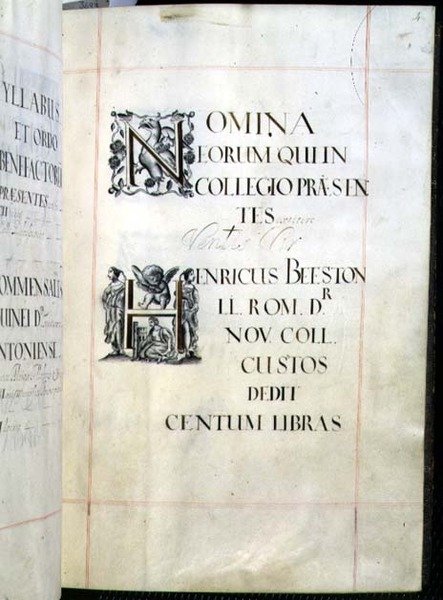 YLLABUS
ET ORDO
PRÆSENTES
OMMENSALES
NTONIENSE.
4
NOMINA
EORUM QUI IN
COLLEGIO PRÆSEN
TES
HENRICUS BEESTON
LL. ROM. DR
NOV. COLL.
CUSTOS
DEDIT
CENTUM LIBRAS